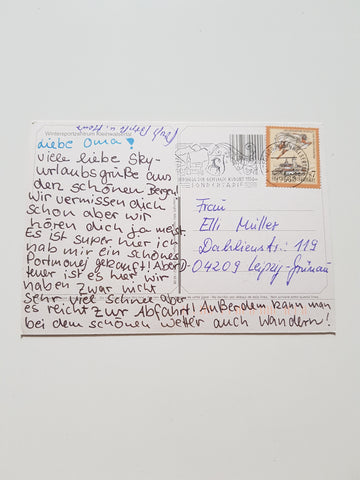 Wintersportzentrum Kleinwalsertal
liebe Oma!
viele liebe Sky-
urlaubsgrüße aus
den schönen Bergen!
Wir vermissen dich
schon aber wir
hören dich ja meist.
Es ist super hier ich
hab mir ein schönes
Portmonei gekauft! Aber
teuer ist es hier wir
haben zwar nicht
sehr viel Schnee aber
es reicht zur Abfahrt! Außerdem kann man
bei dem schönen Wetter auch wandern!
SONDERTARIF
7
Frau
Elli Müller
Dahlienstr. 119
D-04209 Leipzig-Grünau